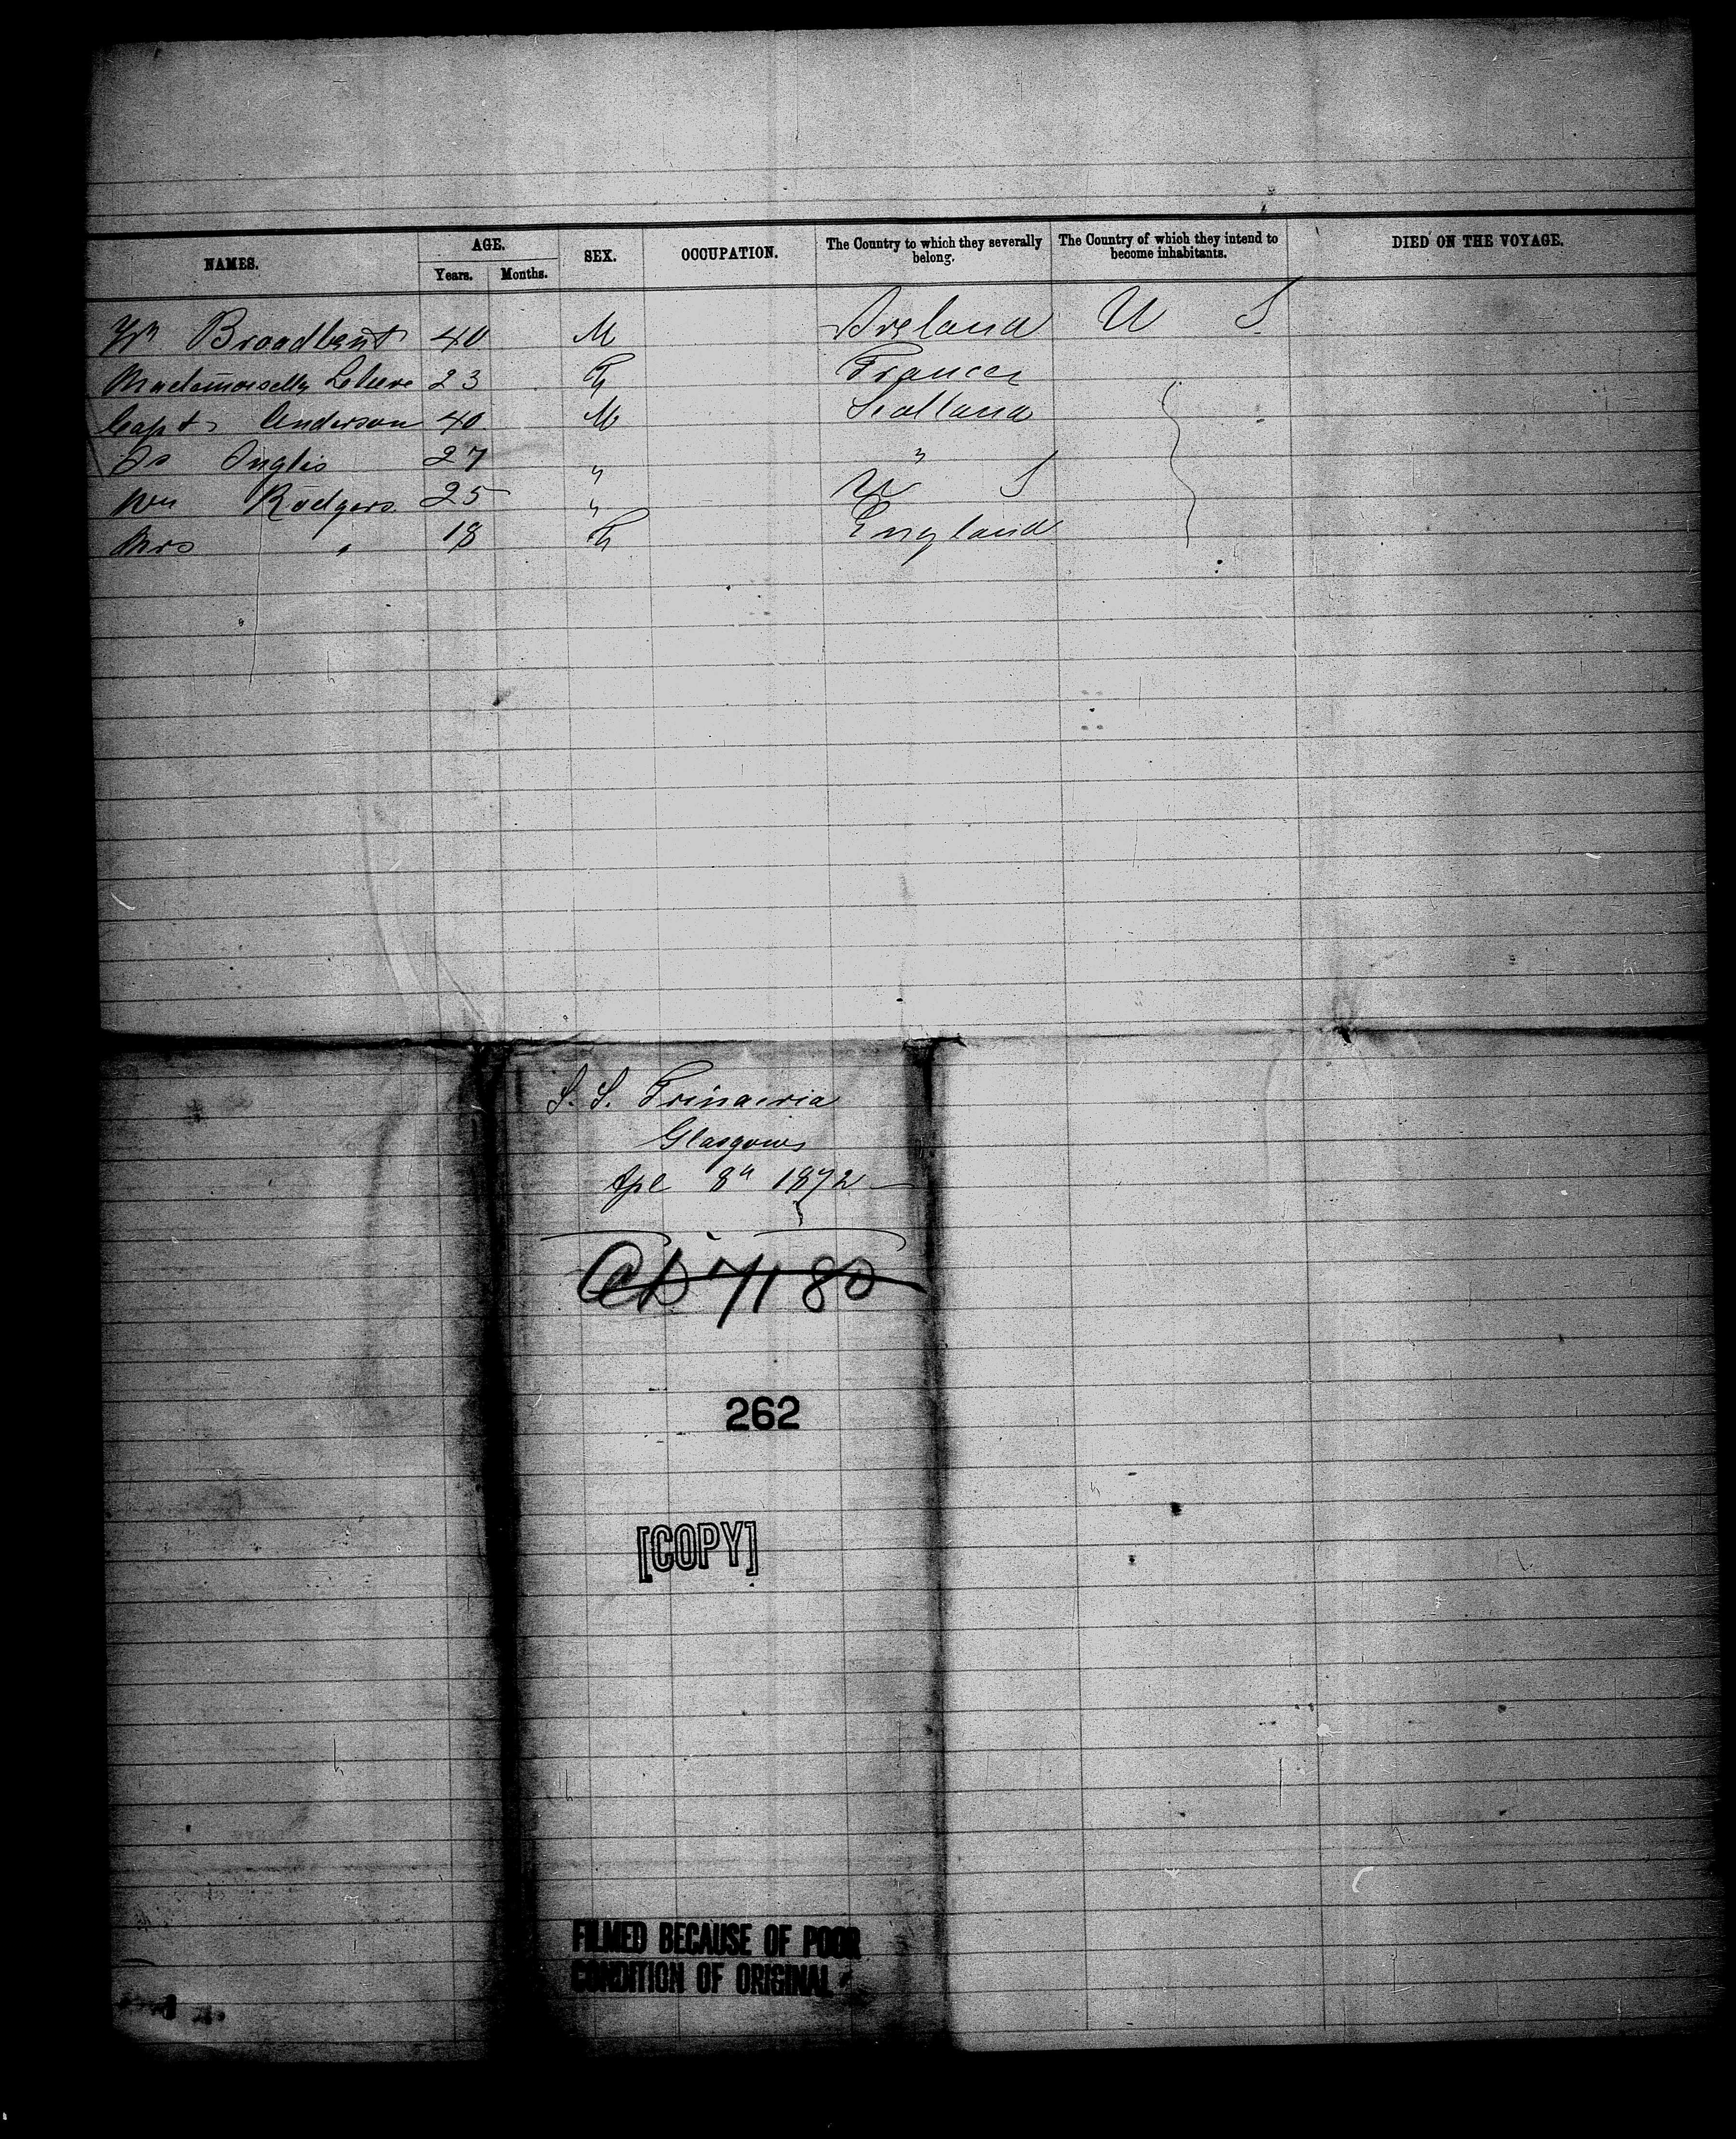 NAMES. AGE. SEX. OCCUPATION. The Country to which they severally belong. The Country of which they intend to become inhabitants. DIED ON THE VOYAGE.
Years. Months.
Wm Broadbent 40 M Ireland U S
Mademoiselle 23 F France
Capt Anderson 40 M Scotland
Inglis 27 " "
Wm Rodgers 25 " U S
Mrs " 18 F England
S. S. Trinacria
Glasgow
Apl 8th 1872
262
[COPY]
FILMED BECAUSE OF POOR
CONDITION OF ORIGINAL